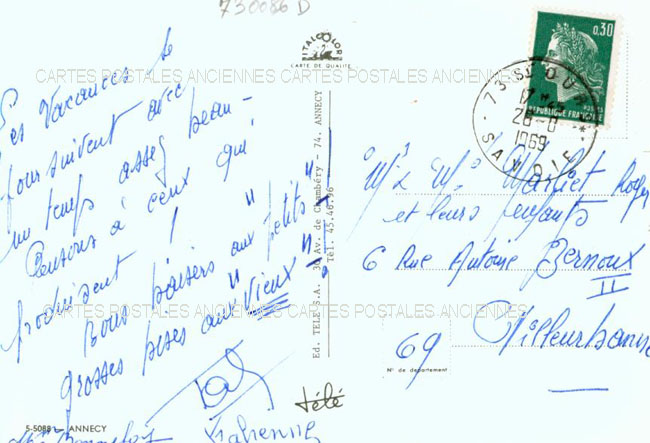 730086 D
ITALCOLOR
CARTE DE QUALITÉ
CARTES POSTALES ANCIENNES CARTES POSTALES ANCIENNES
Les Vacances se
poursuivent avec
un temps assez beau -
Pensons à ceux qui
produisent !
bons baisers aux "petits"
grosses bises aux "Vieux" !
Fabienne
5-5088 - ANNECY
Ed. TELE S.A. 3 Av. de Chambéry - 74. ANNECY
Tél. 45.46.96
télé
0,30
REPUBLIQUE FRANÇAISE
73
28-8
1969
SAVOIE
Mr & Me Roger
et leurs enfants
6 Rue Antoine Bernoux
II
Villeurbanne
69
N° de département
CARTES POSTALES ANCIENNES CARTES POSTALES ANCIENNES